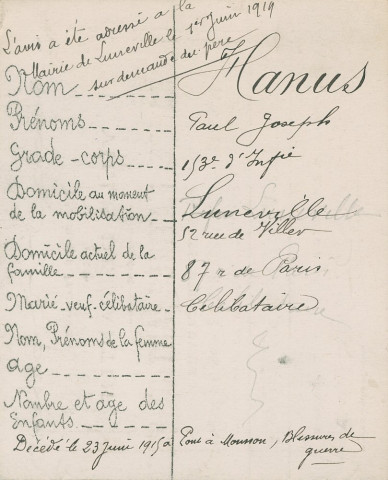 L'avis a été adressé à la
Mairie de Lunéville le 1er Juin 1919
sur demande du père
Nom Hanus
Prénoms Paul Joseph
Grade-corps 153e d'Infie
Domicile au moment
de la mobilisation Lunéville
52 rue de Viller
Domicile actuel de la
famille 87 r de Paris
Marié-veuf-célibataire Célibataire
Nom, Prénoms de la femme
age
Nombre et age des
Enfants
Décédé le 23 Juin 1915 a Pont à Mousson, Blessures de
guerre